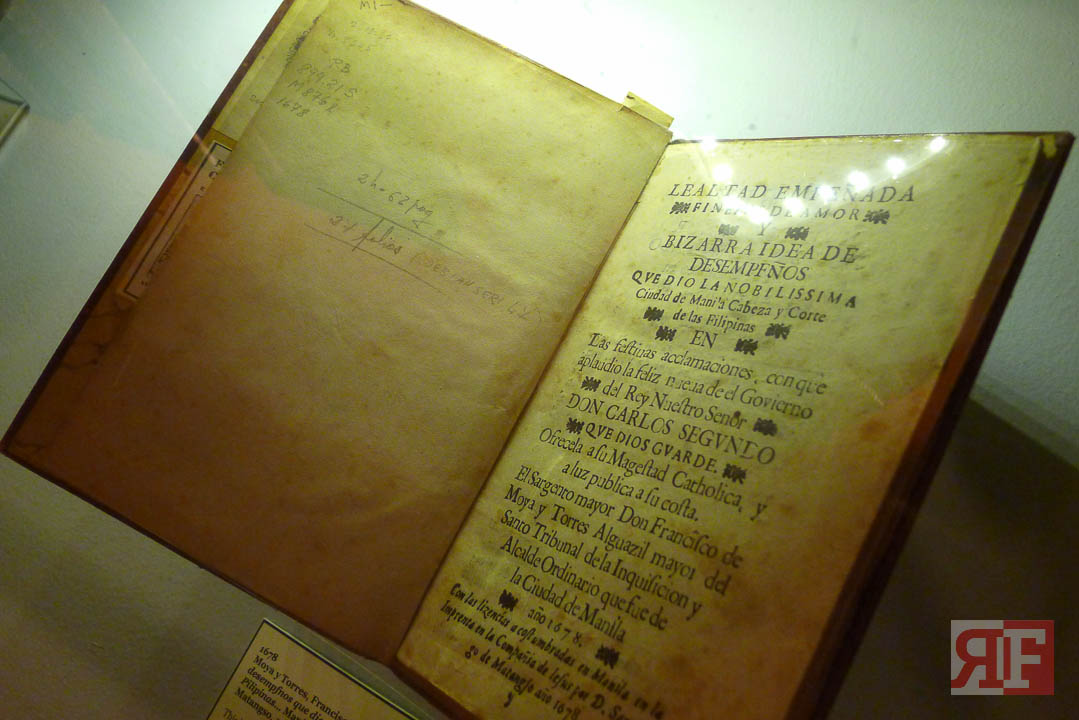 MI-
RB
899.21S
M876l
1678
2h-62pag
34 folios
LEALTAD EMPEÑADA
FINEZAS DE AMOR
Y
BIZARRA IDEA DE
DESEMPEÑOS
QVE DIO LA NOBILISSIMA
Ciudad de Manila Cabeza y Corte
de las Filipinas
EN
Las festivas acclamaciones, con que
aplaudio la feliz nueua de el Govierno
del Rey Nuestro Señor
DON CARLOS SEGVNDO
QVE DIOS GVARDE.
Ofrecela a su Magestad Catholica, y
a luz publica a su costa.
El Sargento mayor Don Francisco de
Moya y Torres Alguazil mayor del
Santo Tribunal de la Inquisicion y
Alcalde Ordinario que fue de
la Ciudad de Manila
año 1678.
Con las lizencias acostumbradas en Manila en la
Imprenta en la Compañia de Iesus por D.
go de Matangso año 1678
1678
Moya y Torres, Francis
desempfnos que di
Filipinas... Man
Matangso,
RF